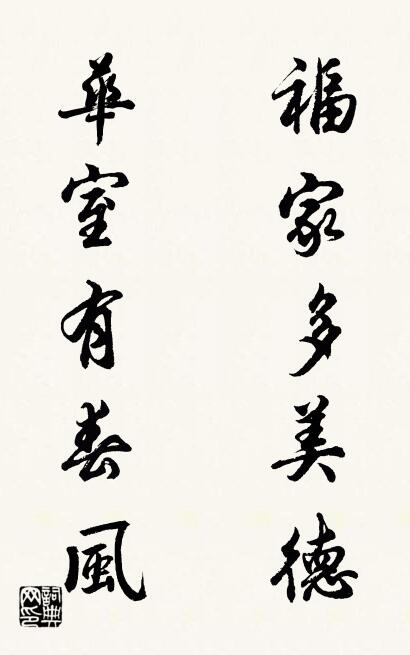 福家多美德
華室有春風
詞典